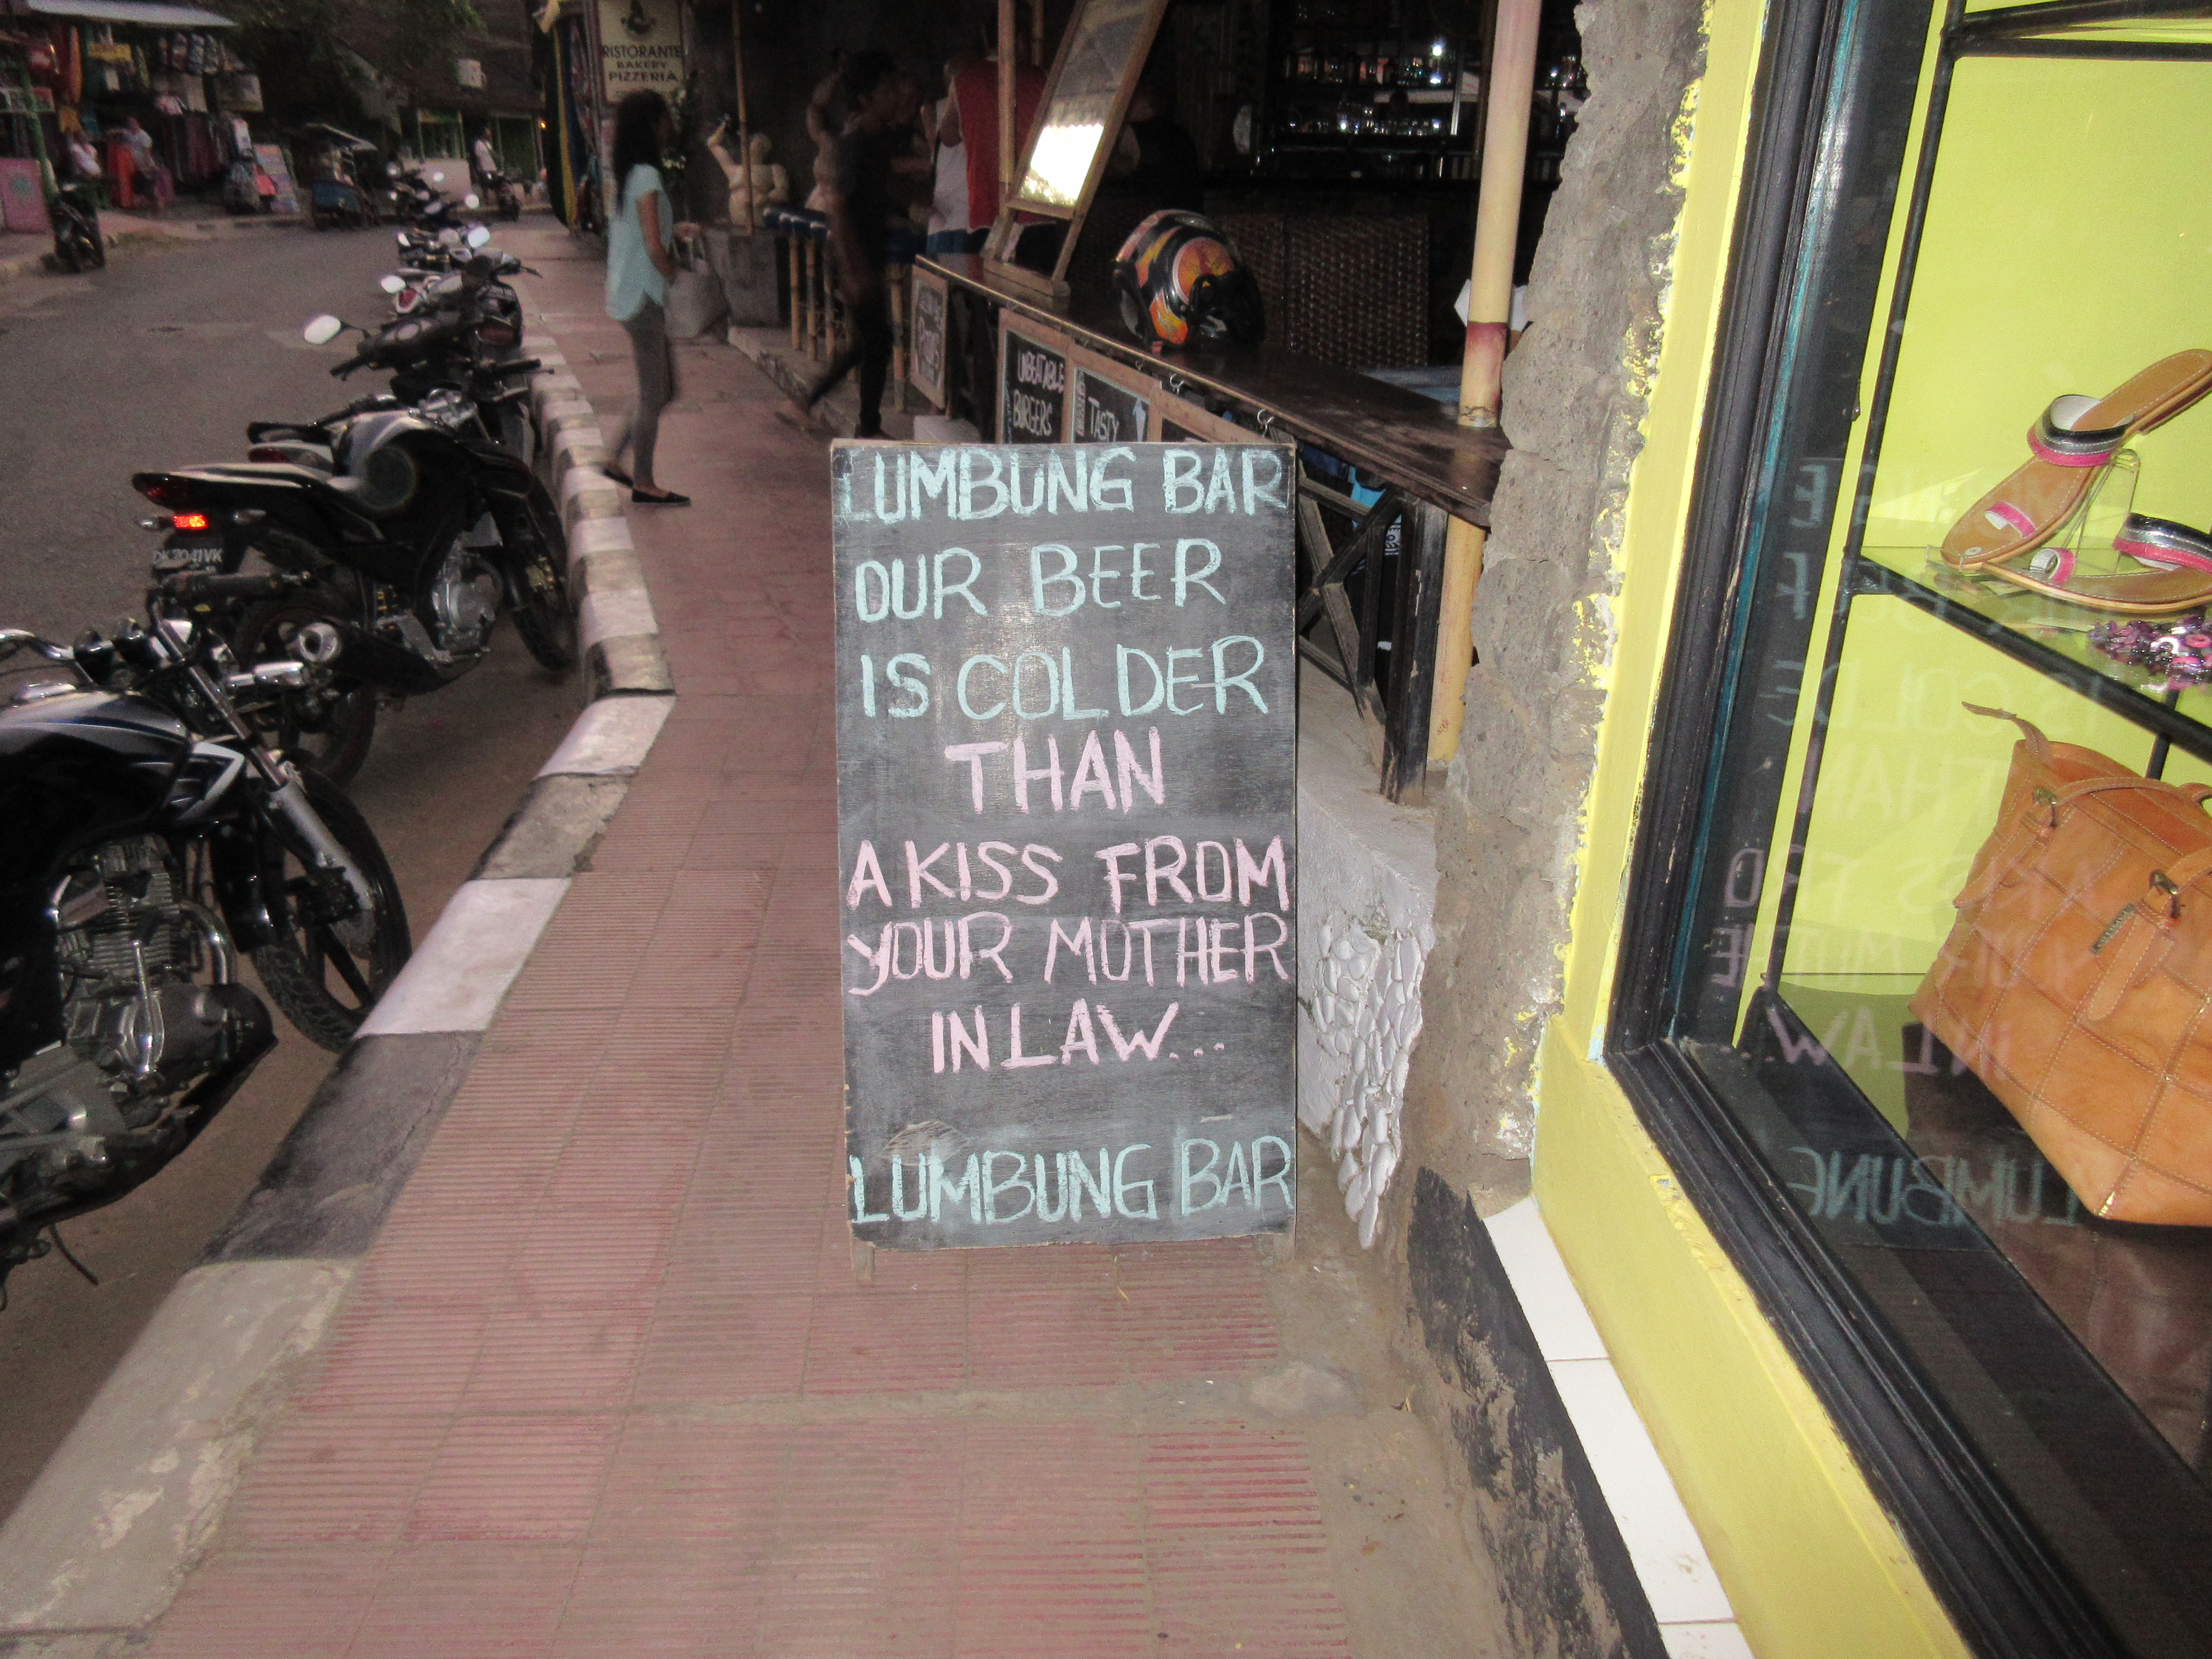 RISTORANTE
BAKERY
PIZZERIA
UNBEATABLE
BURGERS
TASTY
DK 2041 VK
LUMBUNG BAR
OUR BEER
IS COLDER
THAN
A KISS FROM
YOUR MOTHER
IN LAW...
LUMBUNG BAR